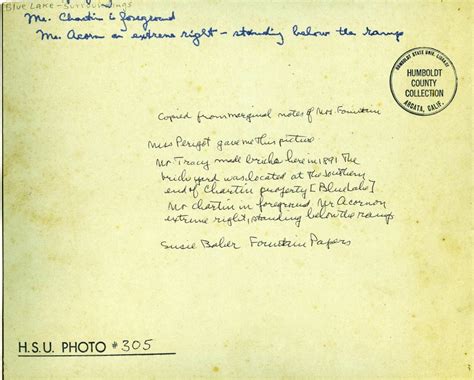 Blue Lake - Surroundings
Mr. Chartin L foreground
Mr. Acorn on extreme right - standing below the ramp
HUMBOLDT STATE UNIV. LIBRARY
HUMBOLDT
COUNTY
COLLECTION
ARCATA, CALIF.
Copied from marginal notes of Mrs. Fountain
Miss Perigot gave me this picture
Mr Tracy made bricks here in 1891 The
brick yard was located at the southern
end of Chartin property [Blue Lake]
Mr Chartin in foreground, Mr Acorn on
extreme right, standing below the ramp
Susie Baker Fountain Papers
H.S.U. PHOTO #305